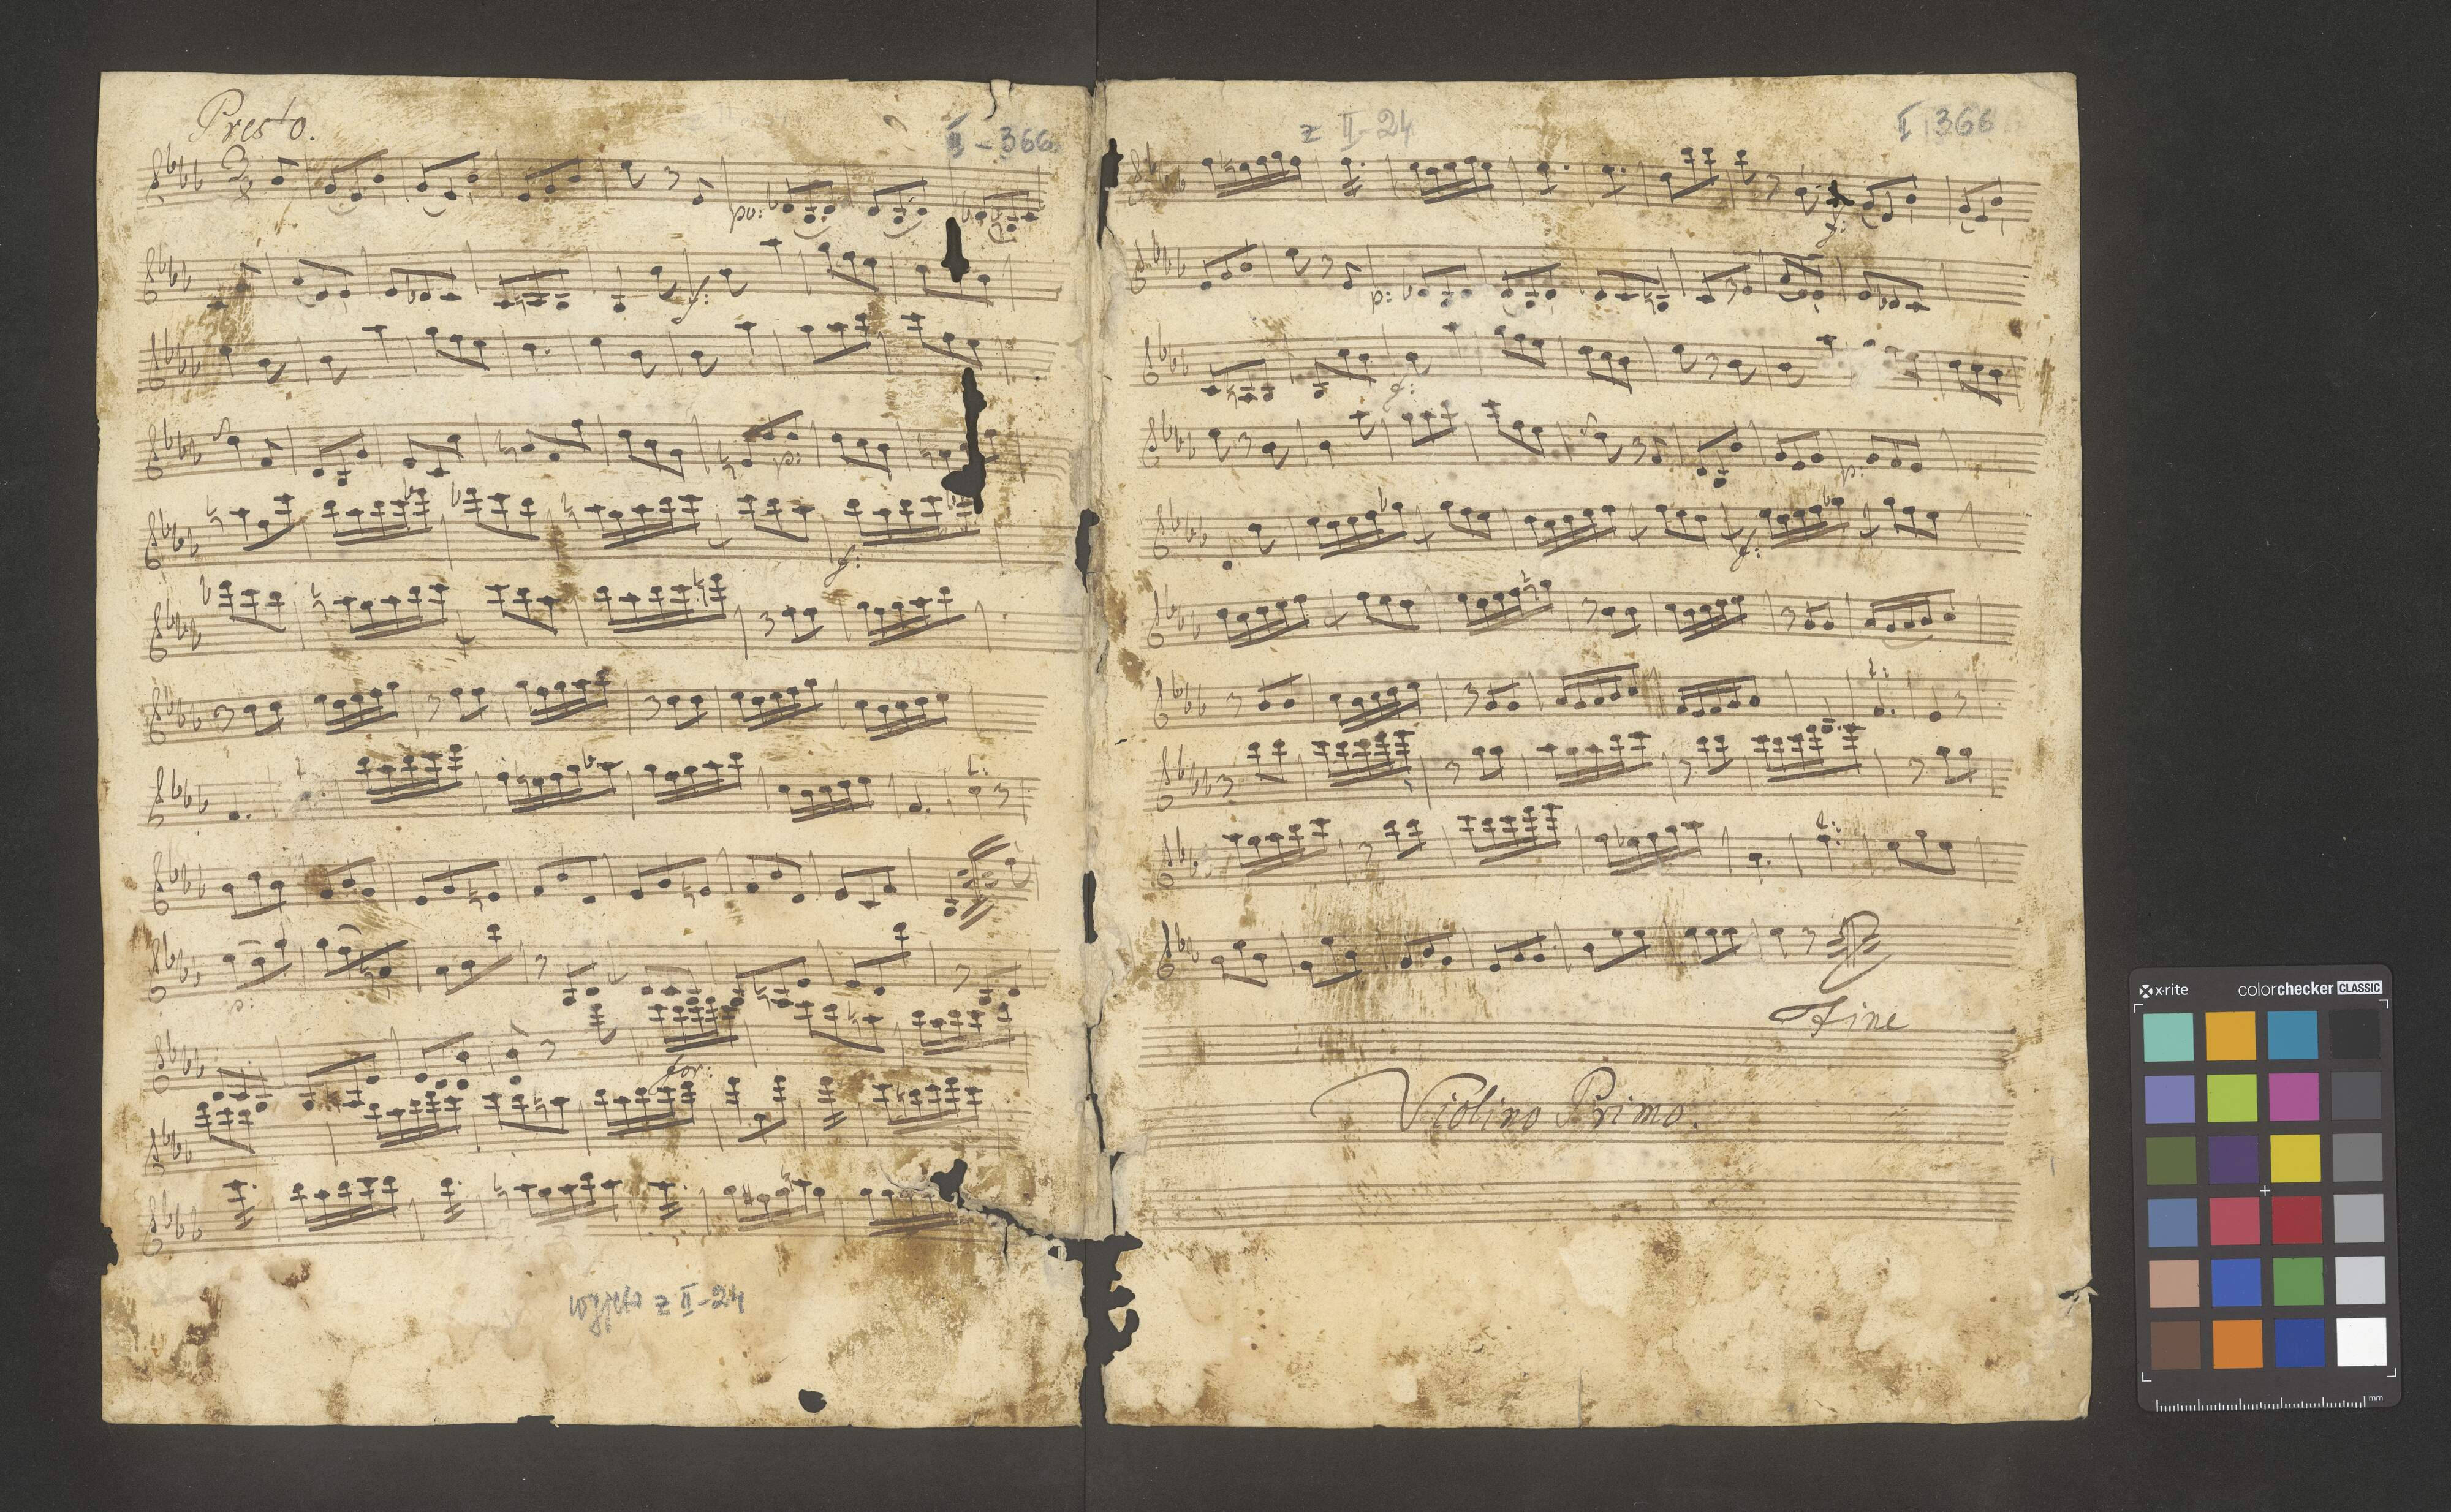 Presto.
II - 366
3
8
po:
f:
p:
f:
p:
for:
wyjęto z II-24
z II-24
I 366
f:
p:
f:
p:
f:
Fine
Violino Primo.
x-rite
colorchecker CLASSIC
mm